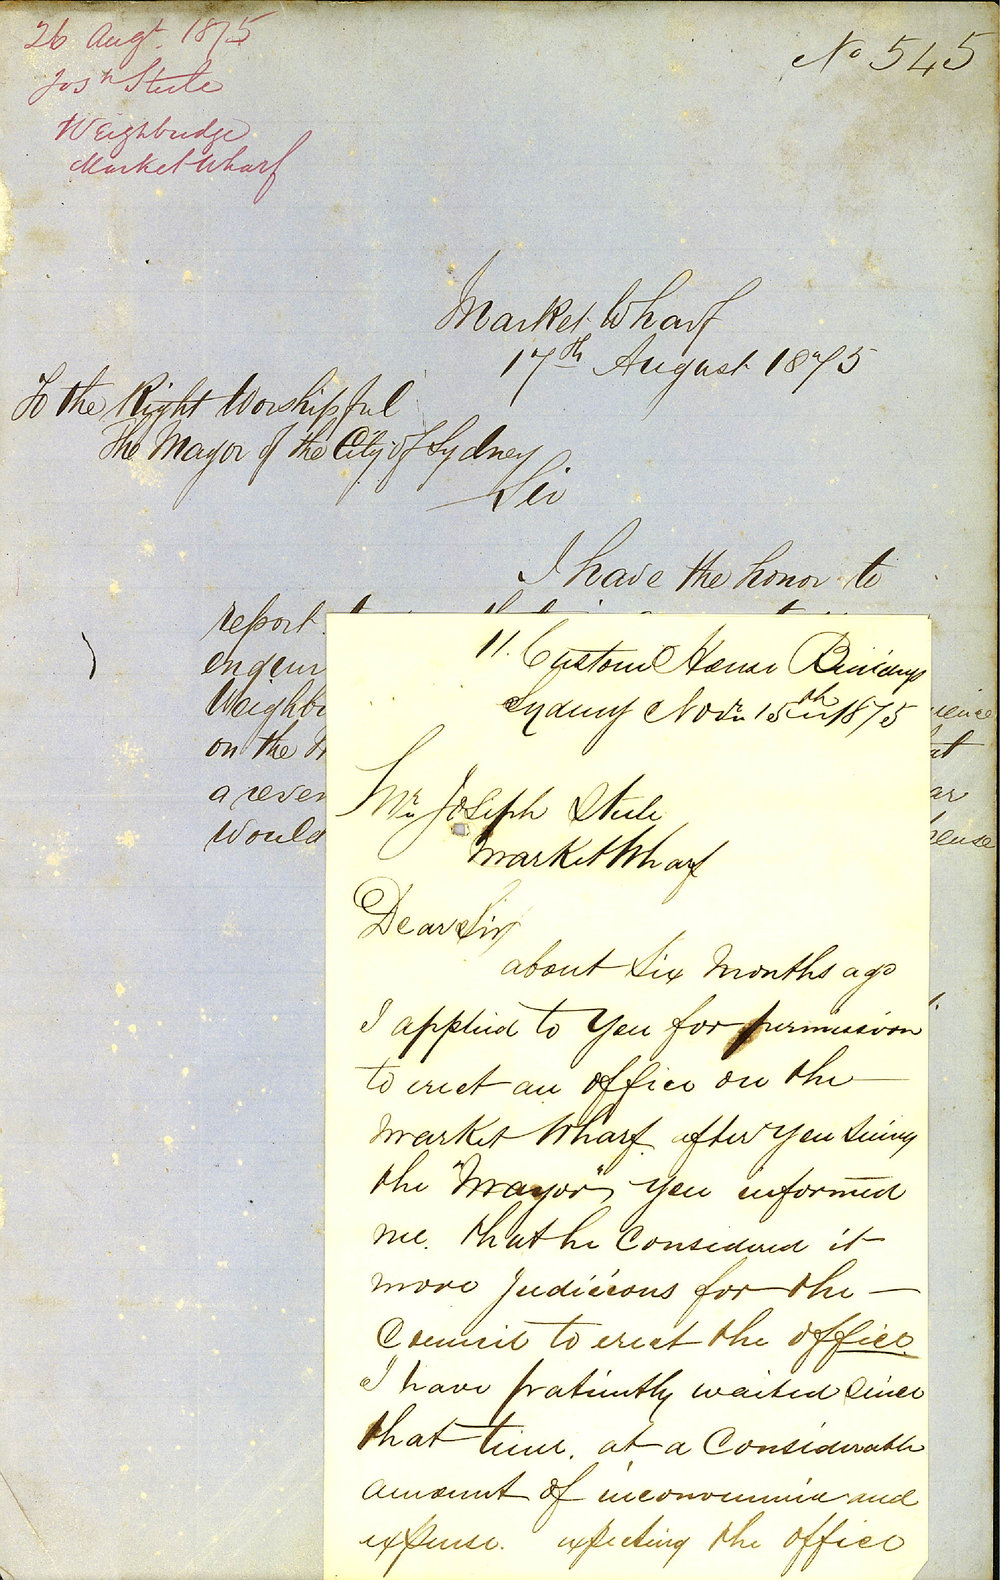 26 Augt. 1875
Josh Steele
Weighbridge
Market Wharf
No 545
Market Wharf
17th August 1875
To the Right Worshipful
The Mayor of the City of Sydney
Sir
I have the honor to
report
Weighb
on the
a reven
would
11. Custom House Buildings
Sydney Novr 15th 1875
Mr Joseph Steele
Market Wharf
Dear Sir
about Six Months ago
I applied to you for permission
to erect an office on the
Market Wharf. after you seeing
the "Mayor", you informed
me. that he Considered it
more Judicious for the
Council to erect the office.
I have patiently waited since
that time. at a Considerable
amount of inconvenience and
expense. expecting the office